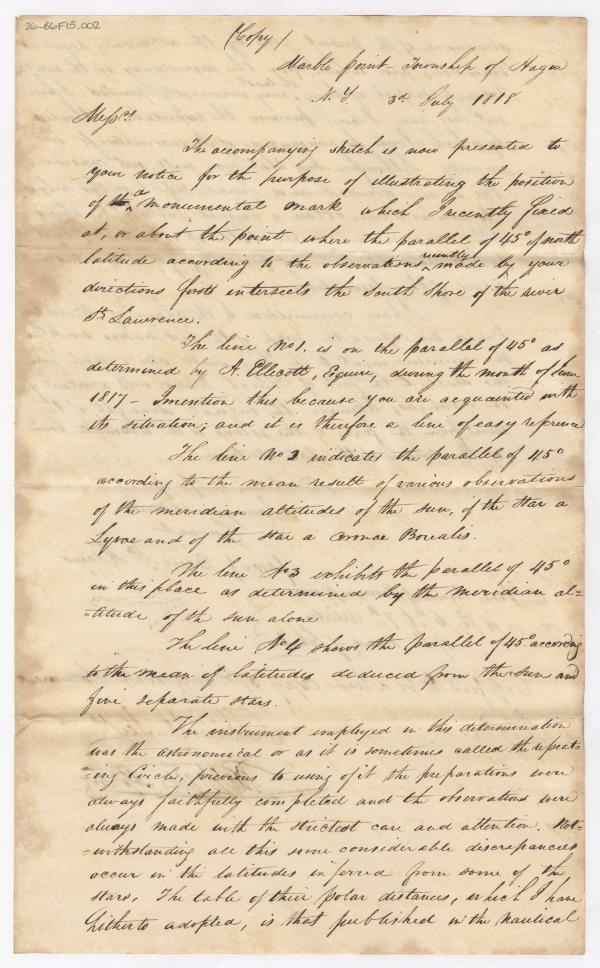 26-B6F15.002
(Copy)
Marble point - Township of Hague
N. Y. 3d July 1818
Messrs
The accompanying sketch is now presented to
your notice for the purpose of illustrating the position
of a monumental mark which I recently fixed
at, or about the point where the parallel of 45° of north
latitude according to the observations recently made by your
directions first intersects the South Shore of the river
St Lawrence.
The line No 1. is on the parallel of 45° as
determined by A. Ellicott, Esquire, during the month of June
1817 - I mention this because you are acquainted with
its situation; and it is therefore a line of easy reference
The line No 2 indicates the parallel of 45°
according to the mean result of various observations
of the meridian altitudes of the sun, of the Star a
Lyrae and of the star a coronae Borealis.
The line No 3 exhibits the parallel of 45°
in this place as determined by the meridian al=
=titude of the sun alone
The line No 4 shows the parallel of 45° according
to the mean of latitudes deduced from the sun and
five separate stars.
The instrument employed in this determination
was the astronomical or as it is sometimes called the repeat=
=ing Circle, previous to using of it the preparations were
always faithfully completed and the observations were
always made with the strictest care and attention. Not=
=withstanding all this some considerable discrepancies
occur in the latitudes inferred from some of the
stars. The table of their polar distances, which I have
hitherto adopted, is that published in the nautical